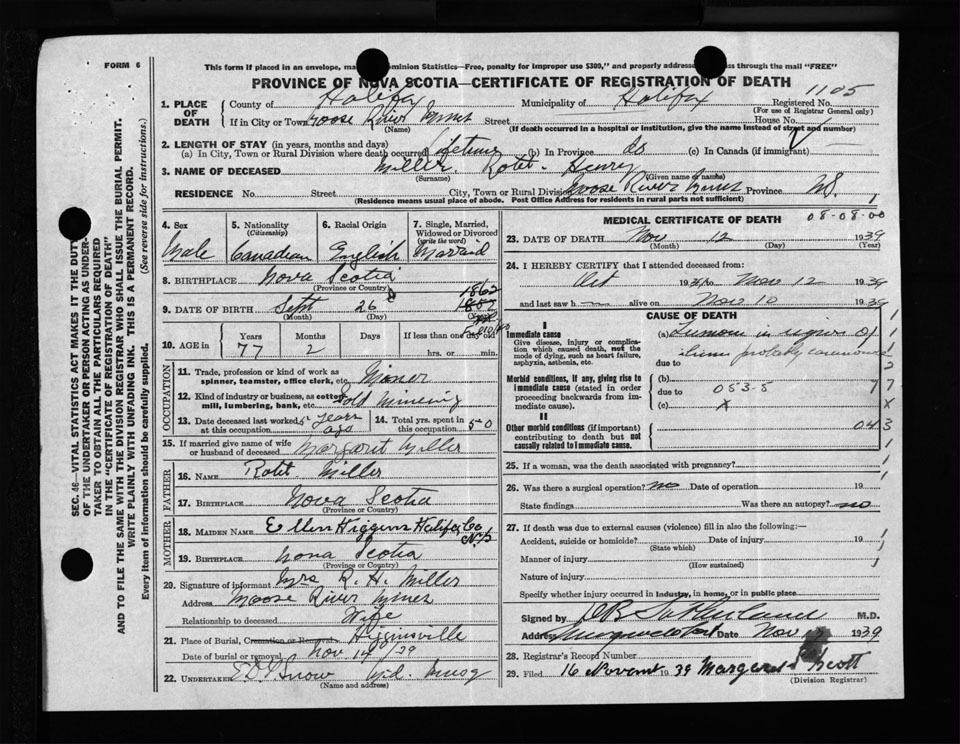 FORM 6
This form if placed in an envelope, ma ominion Statistics—Free, penalty for improper use $300," and properly addresse ass through the mail "FREE"
PROVINCE OF NOVA SCOTIA—CERTIFICATE OF REGISTRATION OF DEATH
1105
1. PLACE OF DEATH
County of Halifax Municipality of Halifax Registered No.
(For use of Registrar General only)
If in City or Town Moose River Mines Street House No.
(Name) (If death occurred in a hospital or institution, give the name instead of street and number)
2. LENGTH OF STAY (in years, months and days)
(a) In City, Town or Rural Division where death occurred lifetime (b) In Province do (c) In Canada (if immigrant)
3. NAME OF DECEASED Miller Robt. Henry
(Surname) (Given name or names)
RESIDENCE No. Street City, Town or Rural Division Moose River Mines Province N.S.
(Residence means usual place of abode. Post Office Address for residents in rural parts not sufficient)
4. Sex
Male
5. Nationality
(Citizenship)
Canadian
6. Racial Origin
English
7. Single, Married, Widowed or Divorced
(write the word)
Married
8. BIRTHPLACE Nova Scotia
(Province or Country)
9. DATE OF BIRTH Sept 26 1862
(Month) (Day)
10. AGE in
Years Months Days If less than one day old
77 2
hrs. or min.
OCCUPATION
11. Trade, profession or kind of work as spinner, teamster, office clerk, etc. Miner
12. Kind of industry or business, as cotton mill, lumbering, bank, etc. Gold mining
13. Date deceased last worked at this occupation years ago
14. Total yrs. spent in this occupation 50
15. If married give name of wife or husband of deceased Margaret Miller
FATHER
16. NAME Robt Miller
17. BIRTHPLACE Nova Scotia
(Province or Country)
MOTHER
18. MAIDEN NAME Ellen Higgins Halifax Co N.S
19. BIRTHPLACE Nova Scotia
(Province or Country)
20. Signature of informant Mrs R. H. Miller
Address Moose River Mines
Relationship to deceased Wife
21. Place of Burial, Cremation or Removal Higginsville
Date of burial or removal Nov 14/39
22. UNDERTAKER Snow Mid. Musq
(Name and address)
MEDICAL CERTIFICATE OF DEATH
08-08-00
23. DATE OF DEATH Nov 12 1939
(Month) (Day) (Year)
24. I HEREBY CERTIFY that I attended deceased from:
Oct 1939 to Nov 12 1939
and last saw h alive on Nov 10 1939
CAUSE OF DEATH
I
Immediate cause
Give disease, injury or complication which caused death, not the mode of dying, such as heart failure, asphyxia, asthenia, etc.
(a) Tumour in region of
ilium probably carcinoma
due to
Morbid conditions, if any, giving rise to immediate cause (stated in order proceeding backwards from immediate cause).
(b)
due to 053-5
(c) X
II
Other morbid conditions (if important) contributing to death but not causally related to immediate cause.
043
25. If a woman, was the death associated with pregnancy?
26. Was there a surgical operation? no Date of operation 19
State findings Was there an autopsy? no
27. If death was due to external causes (violence) fill in also the following:—
Accident, suicide or homicide? Date of injury 19
(State which)
Manner of injury
(How sustained)
Nature of injury
Specify whether injury occurred in industry, in home, or in public place
Signed by D B Sutherland M.D.
Address Date Nov 1939
28. Registrar's Record Number
29. Filed 16 Novant 1939 Margaret Scott
(Division Registrar)
SEC. 46—VITAL STATISTICS ACT MAKES IT THE DUTY OF THE UNDERTAKER OR PERSON ACTING AS UNDERTAKER TO OBTAIN ALL THE PARTICULARS REQUIRED IN THE "CERTIFICATE OF REGISTRATION OF DEATH"
AND TO FILE THE SAME WITH THE DIVISION REGISTRAR WHO SHALL ISSUE THE BURIAL PERMIT.
WRITE PLAINLY WITH UNFADING INK. THIS IS A PERMANENT RECORD.
Every item of information should be carefully supplied. (See reverse side for instructions.)